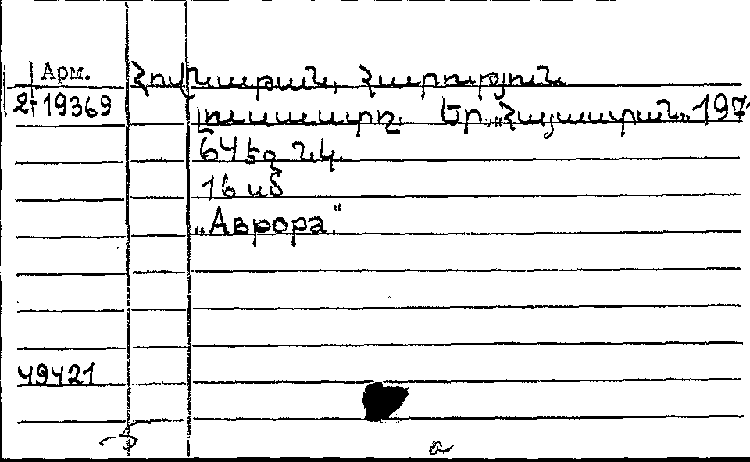 Арм. Հովնաթան, Հարություն
2-19369 Լուսաստղ. Եր. „Հայաստան„ 197
64 էջ նկ.
16 սմ
„Аврора"
49421
a